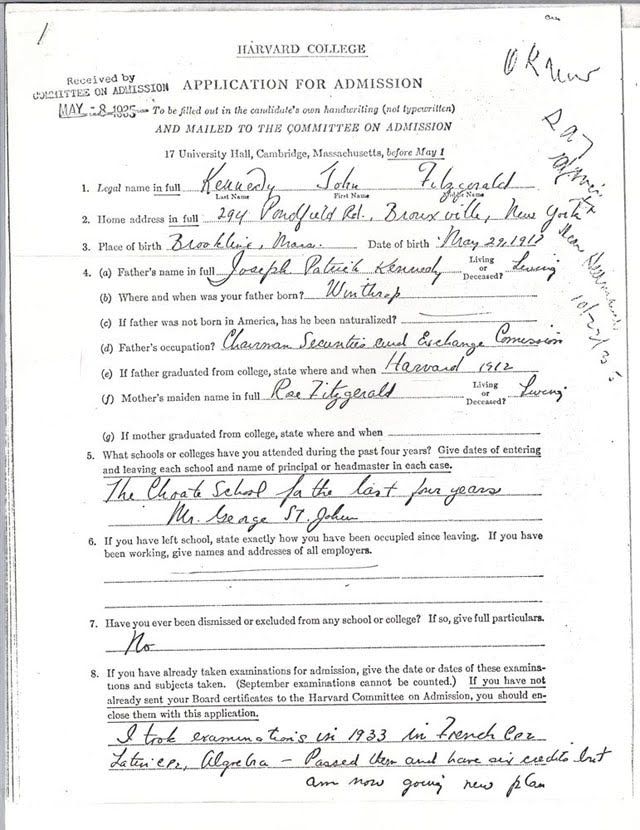 1
HARVARD COLLEGE
Received by
COMMITTEE ON ADMISSION
MAY -8 1935
APPLICATION FOR ADMISSION
To be filled out in the candidate's own handwriting (not typewritten)
AND MAILED TO THE COMMITTEE ON ADMISSION
17 University Hall, Cambridge, Massachusetts, before May 1
1. Legal name in full Kennedy John Fitzgerald
Last Name First Name Middle Name
2. Home address in full 294 Pondfield Rd., Bronxville, New York
3. Place of birth Brookline, Mass. Date of birth May 29, 1917
4. (a) Father's name in full Joseph Patrick Kennedy Living or Deceased? Living
(b) Where and when was your father born? Winthrop
(c) If father was not born in America, has he been naturalized?
(d) Father's occupation? Chairman Securities and Exchange Comission
(e) If father graduated from college, state where and when Harvard 1912
(f) Mother's maiden name in full Rose Fitzgerald Living or Deceased? Living
(g) If mother graduated from college, state where and when
5. What schools or colleges have you attended during the past four years? Give dates of entering
and leaving each school and name of principal or headmaster in each case.
The Choate School for the last four years
Mr. George St. John
6. If you have left school, state exactly how you have been occupied since leaving. If you have
been working, give names and addresses of all employers.
7. Have you ever been dismissed or excluded from any school or college? If so, give full particulars.
No
8. If you have already taken examinations for admission, give the date or dates of these examina-
tions and subjects taken. (September examinations cannot be counted.) If you have not
already sent your Board certificates to the Harvard Committee on Admission, you should en-
close them with this application.
I took examinations in 1933 in French
Latin Algebra – Passed them and have six credits but
am now going new plan